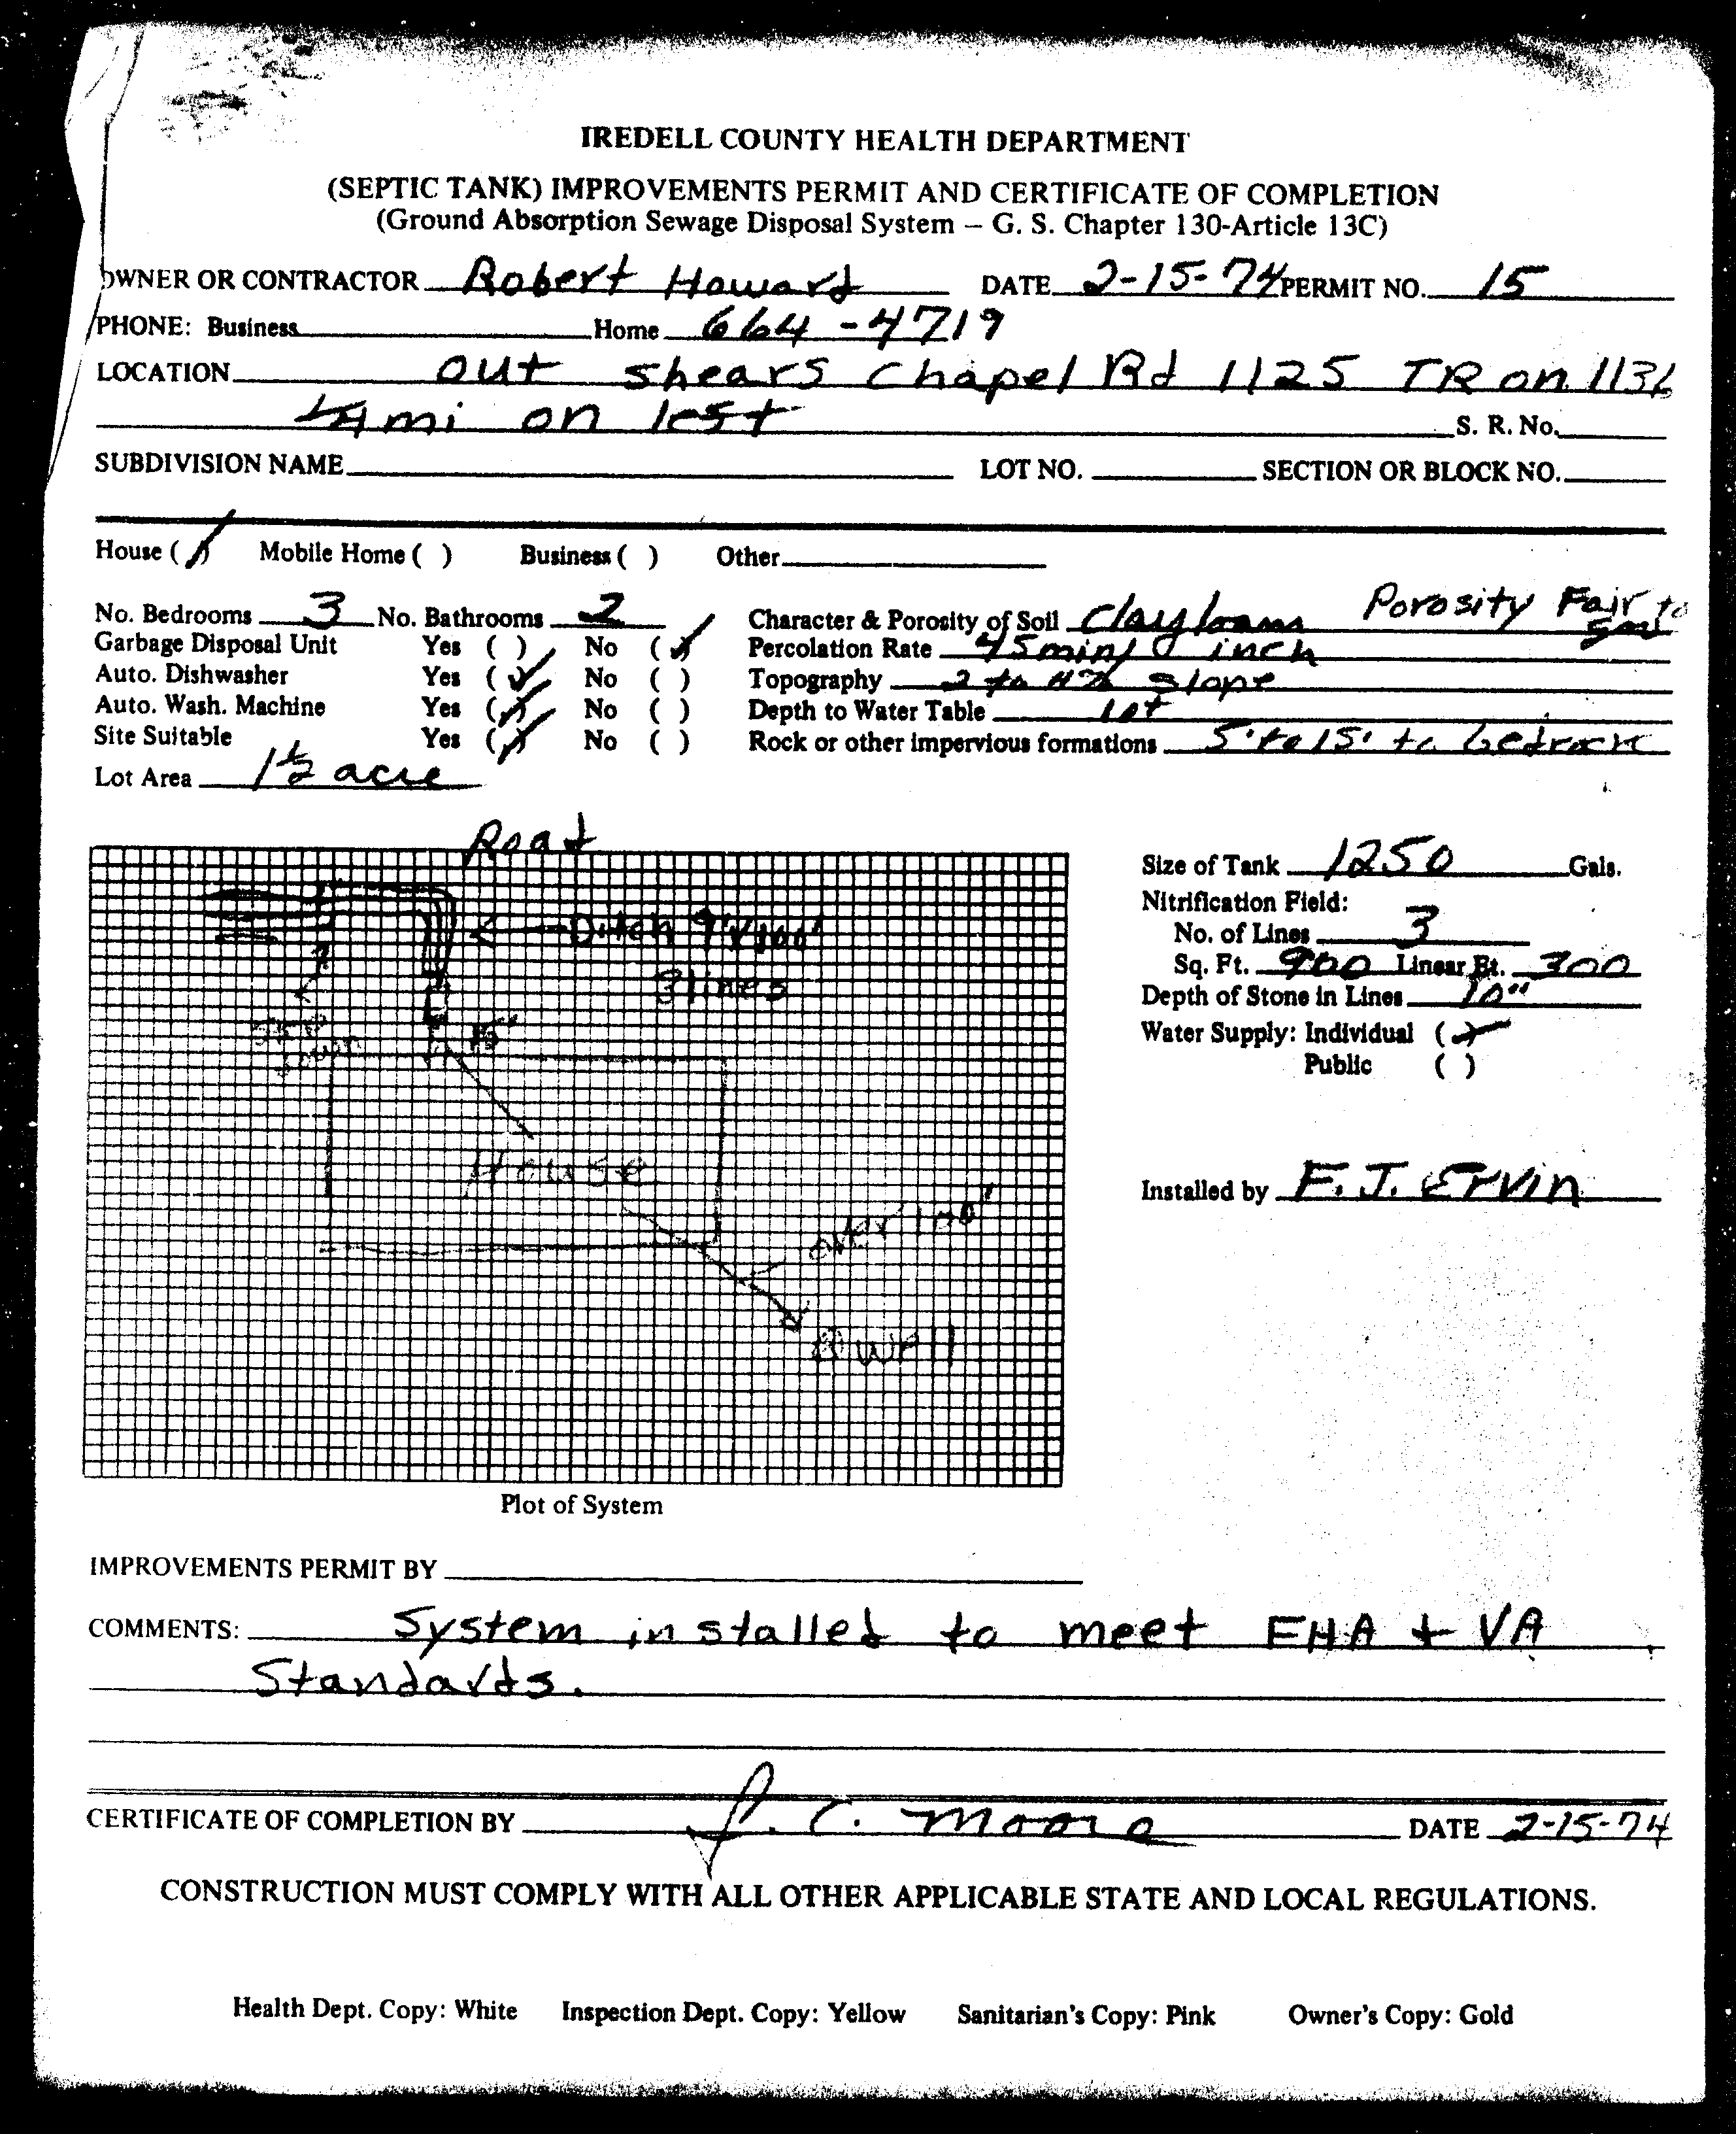 IREDELL COUNTY HEALTH DEPARTMENT
(SEPTIC TANK) IMPROVEMENTS PERMIT AND CERTIFICATE OF COMPLETION
(Ground Absorption Sewage Disposal System – G. S. Chapter 130-Article 13C)
OWNER OR CONTRACTOR Robert Howard DATE 2-15-74 PERMIT NO. 15
PHONE: Business Home 664-4719
LOCATION out shears Chapel Rd 1125 TR on 1136
1/4 mi on left S. R. No.
SUBDIVISION NAME LOT NO. SECTION OR BLOCK NO.
House (✓) Mobile Home ( ) Business ( ) Other
No. Bedrooms 3 No. Bathrooms 2 Character & Porosity of Soil Clay loam Porosity Fair to
Garbage Disposal Unit Yes ( ) No (✓) Percolation Rate 45 min/ inch
Auto. Dishwasher Yes (✓) No ( ) Topography 2 to 4% slope
Auto. Wash. Machine Yes (✓) No ( ) Depth to Water Table
Site Suitable Yes (✓) No ( ) Rock or other impervious formations to bedrock
Lot Area 1 1/2 acre
Road
Ditch
3 lines
House
over 100'
Well
Plot of System
Size of Tank 1250 Gals.
Nitrification Field:
No. of Lines 3
Sq. Ft. 900 Linear Ft. 300
Depth of Stone in Lines 10"
Water Supply: Individual (✓)
Public ( )
Installed by F. J. Ervin
IMPROVEMENTS PERMIT BY
COMMENTS: System installed to meet FHA + VA
Standards.
CERTIFICATE OF COMPLETION BY J. C. Moore DATE 2-15-74
CONSTRUCTION MUST COMPLY WITH ALL OTHER APPLICABLE STATE AND LOCAL REGULATIONS.
Health Dept. Copy: White Inspection Dept. Copy: Yellow Sanitarian's Copy: Pink Owner's Copy: Gold